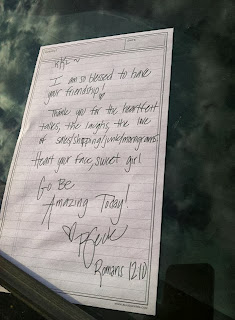 I am so blessed to have
your friendship!
Thank you for the heartfelt
talks, the laughs, the love
of sales/shopping/junk/monograms.
Heart your face, sweet girl
Go Be
Amazing Today!
Romans 12:10